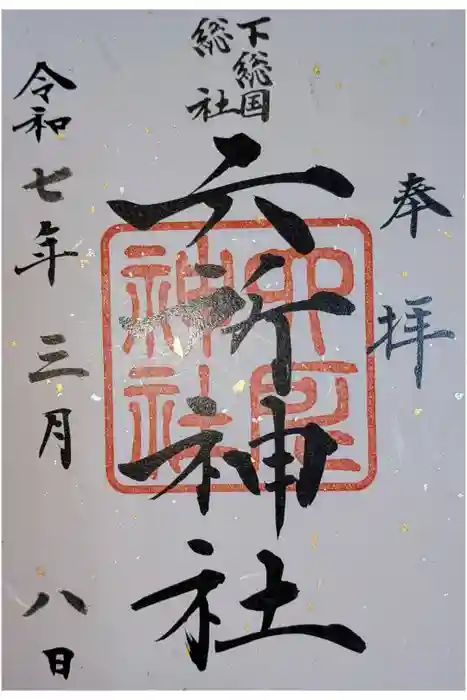 奉拝
下総国
総社
六所神社
六所
神社
令和七年三月八日